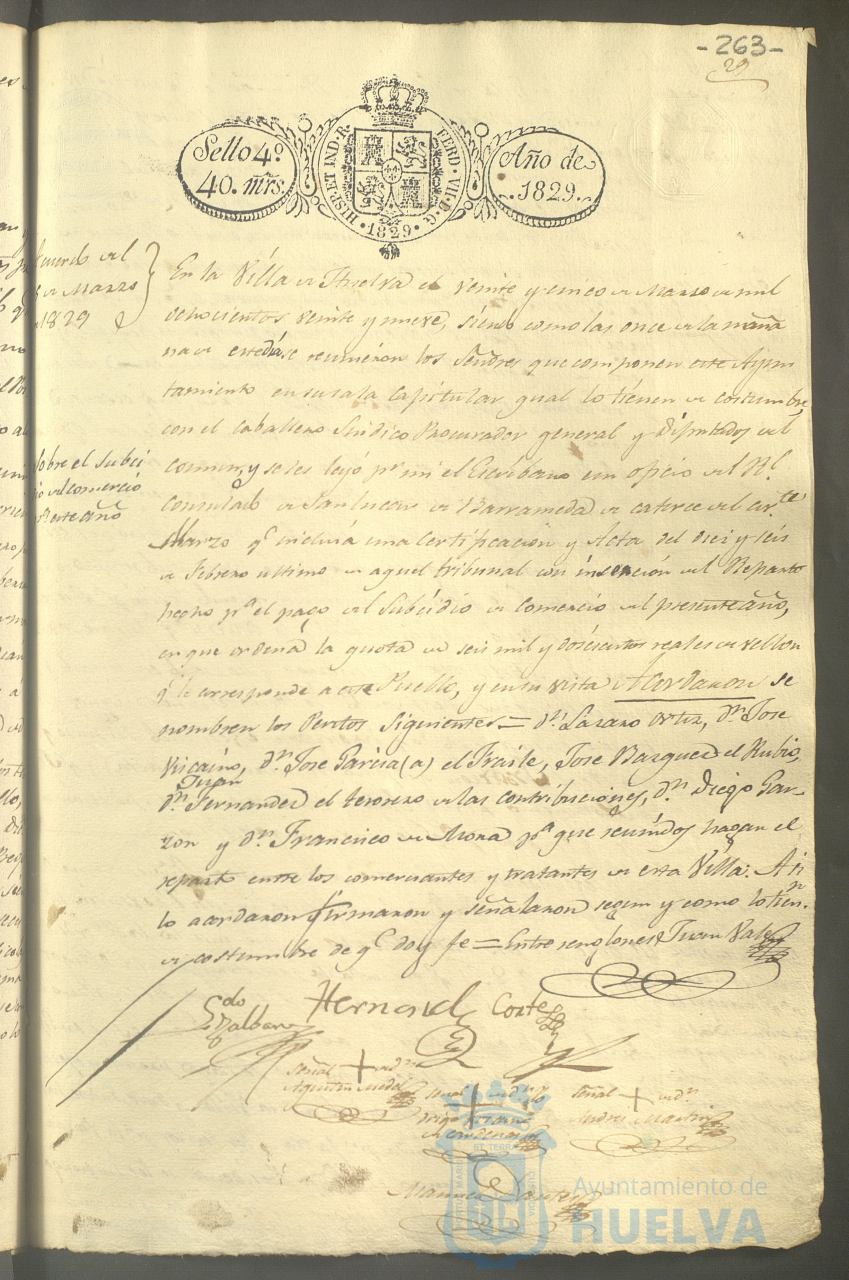 -263-
29
Sello 4º
40. mrs.
HISP. ET IND. R. FERD. VII. D. G.
·1829·
Año de
.1829.
Acuerdo del
de Marzo
1829
Sobre el subci
dio del comercio
pª este año
En la Villa de Huelva el veinte y cinco de Marzo de mil
ochocientos veinte y nueve, siendo como las once de la maña
na de este dia se reunieron los Señores que componen este Ayun
tamiento en su sala Capitular qual lo tienen de costumbre,
con el caballero Sindico Procurador general y Diputados del
Comun, y se les leyó pr. mi el Escribano un oficio del Rl.
Consulado de Sanlucar de Barrameda de catorce del corte.
Marzo qe. incluia una Certificacion y Acta del diez y seis
de Febrero ultimo de aquel tribunal con insercion del Reparto
hecho pª el pago del Subcidio de Comercio del presente año,
en que ordena la quota de seis mil y doscientos reales de vellon
qe. le corresponde a este Pueblo, y en su vista Acordaron se
nombren los Peritos Siguientes = Dn. Lazaro Ortiz, Dn. Jose
Vizcaino, Dn. Jose Garcia (a) el Fraile, Jose Bazquez el Rubio,
Juan
Dn. Fernandez el tesorero de las contribuciones, Dn. Diego Gar-
zon y Dn. Francisco de Mora pª que reunidos hagan el
reparto entre los comerciantes y tratantes de esta Villa. Asi
lo acordaron firmaron y señalaron segun y como lo tien.n
de costumbre de qe. doy fe = Entre renglones Juan Vale
Hernand. Corte
Señal + de dn.
Agustin
Señal + de dn.
Señal + de dn.
Andres Martin
Ayuntamiento de
HUELVA